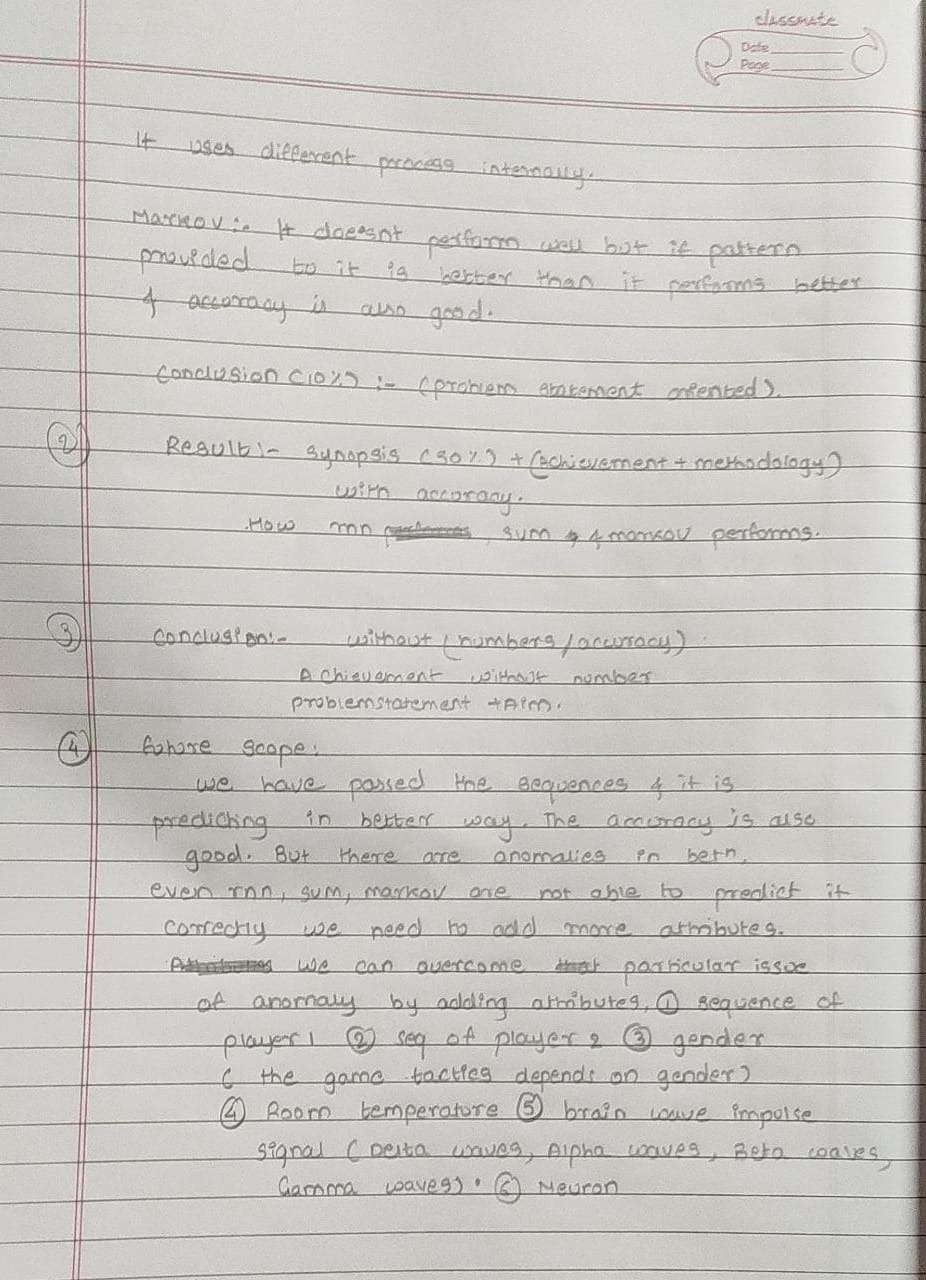 classmate
Date
Page
It uses different process internally.
Markov :- It doesnt perform well but if pattern
provided to it is better than it performs better
& accuracy is also good.
Conclusion (10%) :- (problem statement oriented).
② Result :- Synopsis (30%) + (achievement + methodology)
with accuracy.
How rnn, svm & markov performs.
③ Conclusion:- without (numbers / accuracy).
Achievement without number
problemstatement + Aim.
④ Future scope:
we have passed the sequences & it is
predicting in better way. The accuracy is also
good. But there are anomalies in betn,
even rnn, svm, markov are not able to predict it
correctly we need to add more attributes.
We can overcome that particular issue
of anomaly by adding attributes, ① sequence of
player 1 ② seq of player 2 ③ gender
( the game tactics depends on gender)
④ Room temperature ⑤ brain wave impulse
signal ( Delta waves, Alpha waves, Beta waves,
Gamma waves). ⑥ Neuron